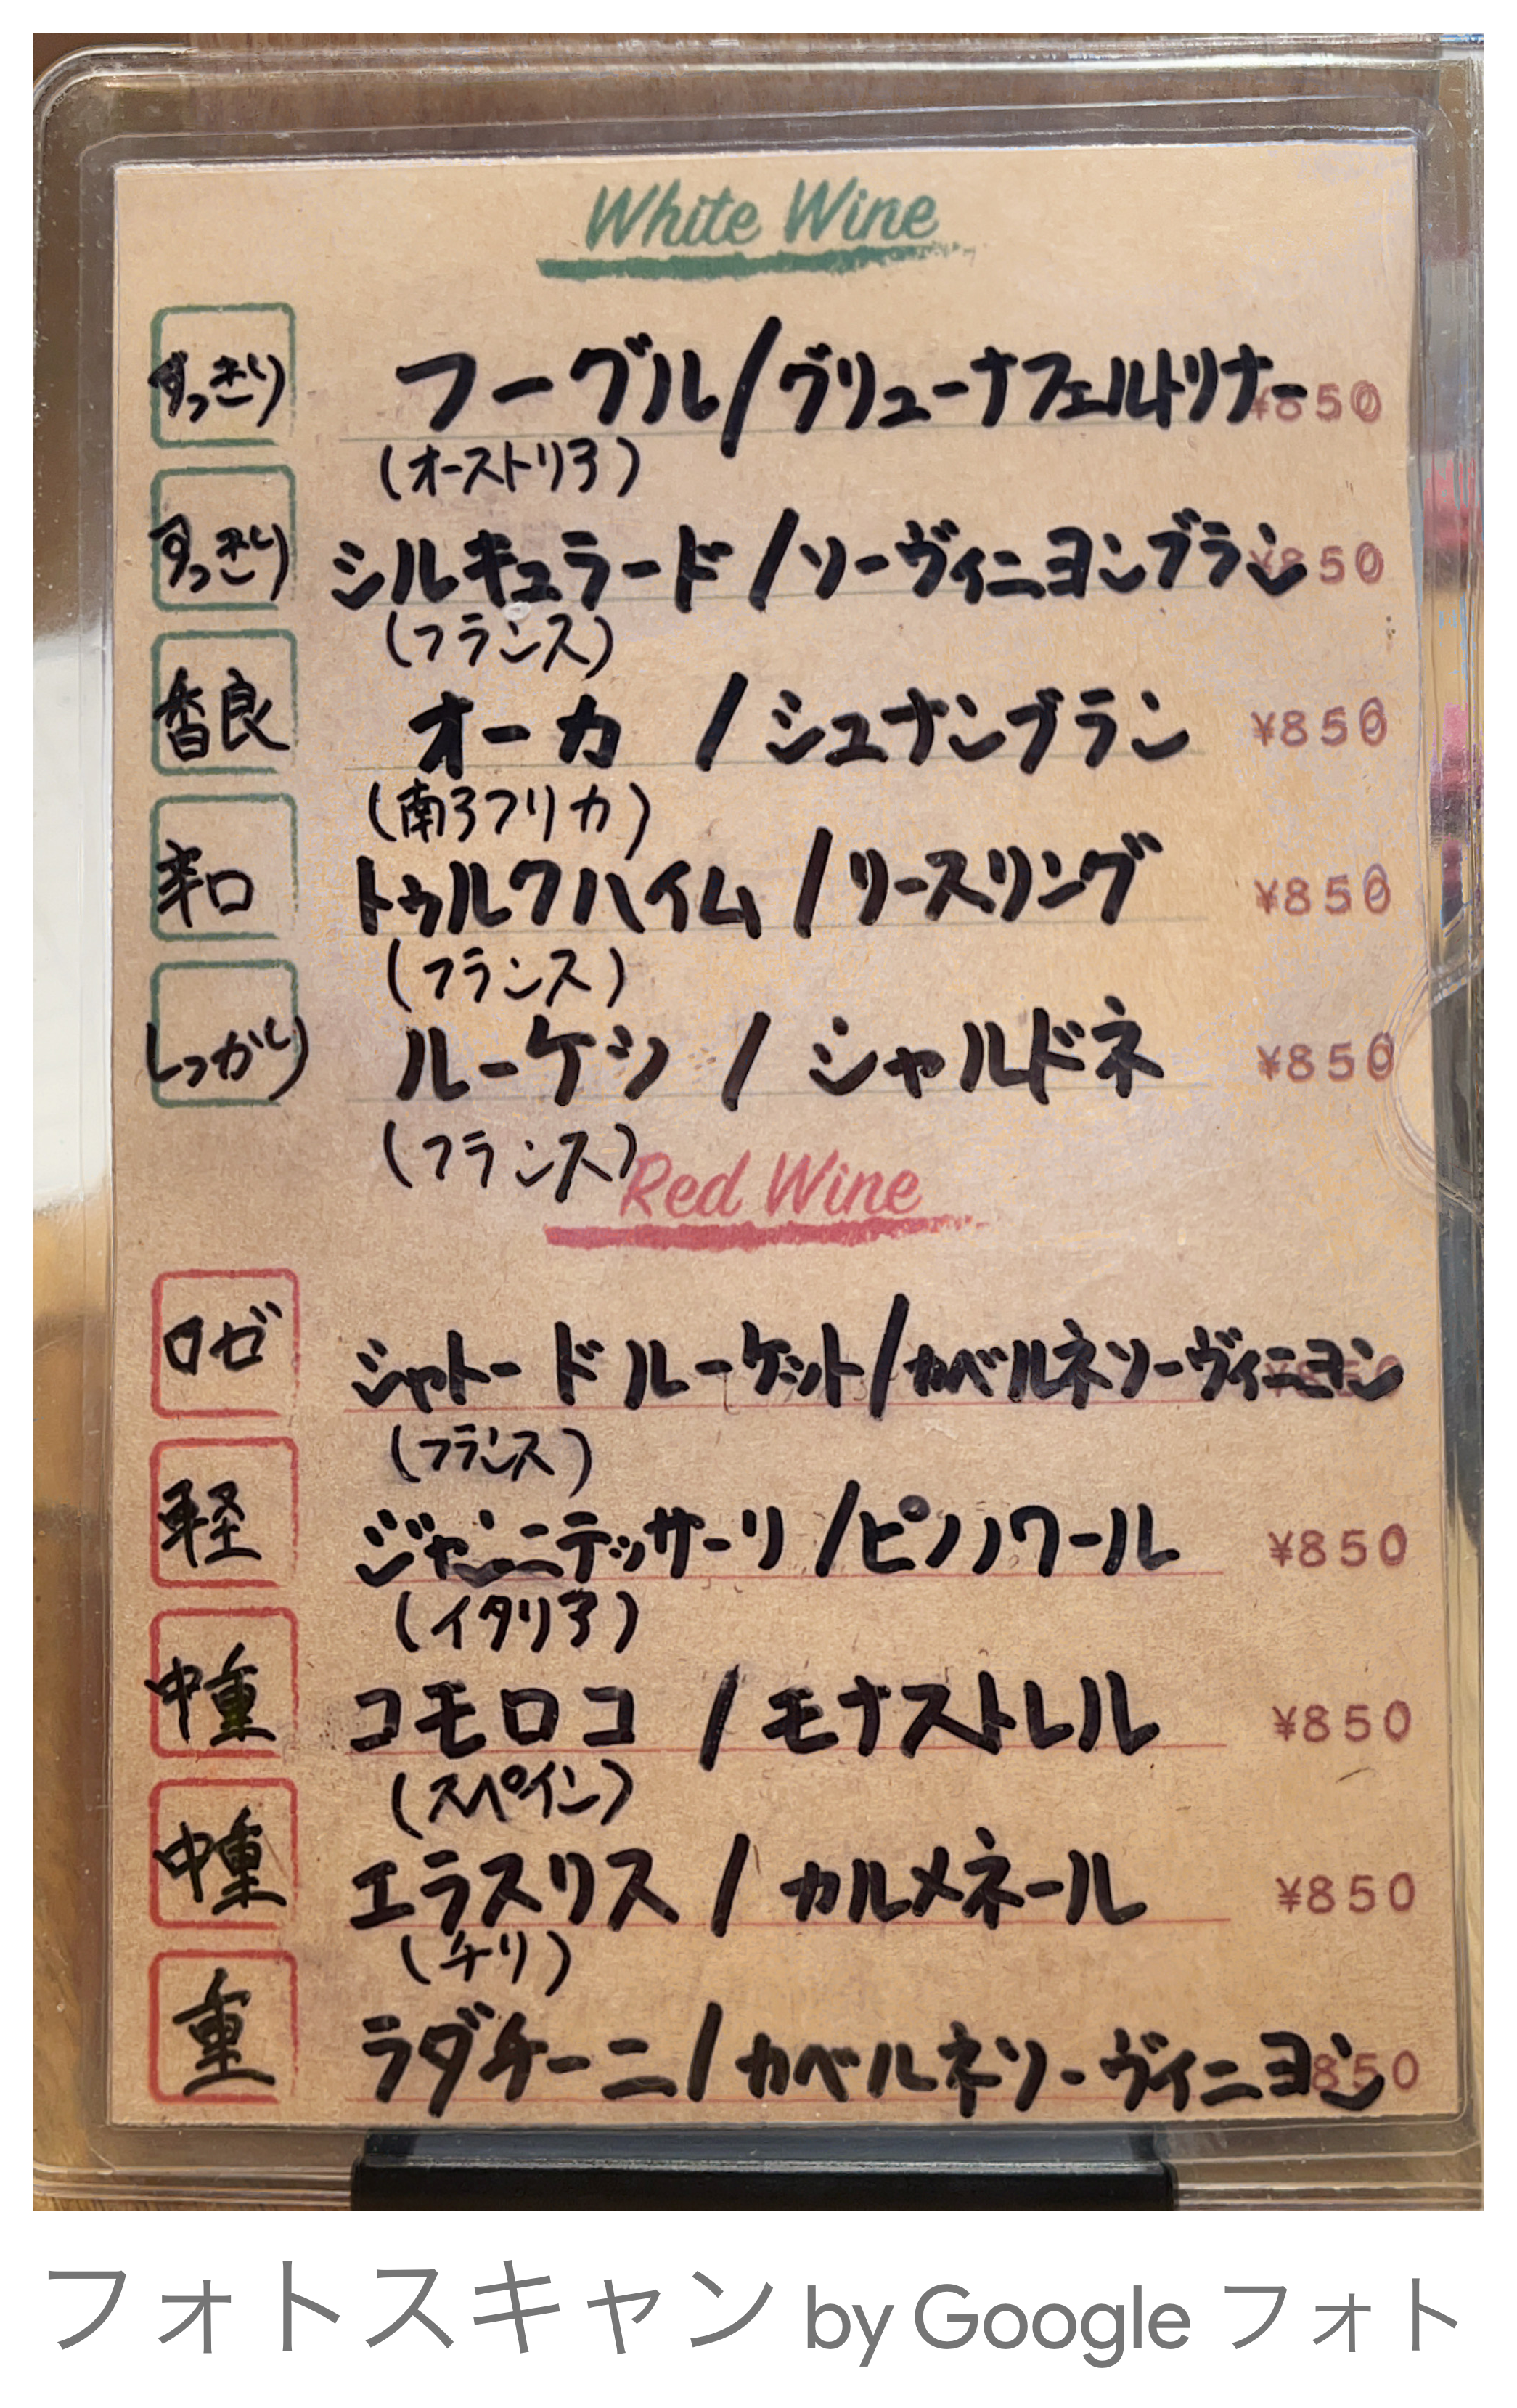 White Wine
すっきり フーグル/グリューナフェルトリナー ¥850
(オーストリア)
すっきり シルキュラード/ソーヴィニヨンブラン ¥850
(フランス)
香良 オーカ/シュナンブラン ¥850
(南アフリカ)
辛口 トゥルクハイム/リースリング ¥850
(フランス)
しっかり ルーケツ/シャルドネ ¥850
(フランス)
Red Wine
ロゼ シャトードルーケット/カベルネソーヴィニヨン ¥850
(フランス)
軽 ジャンニテッサーリ/ピノノワール ¥850
(イタリア)
中重 コモロコ/モナストレル ¥850
(スペイン)
中重 エラスリス/カルメネール ¥850
(チリ)
重 ラダチーニ/カベルネソーヴィニヨン 850
フォトスキャン by Google フォト